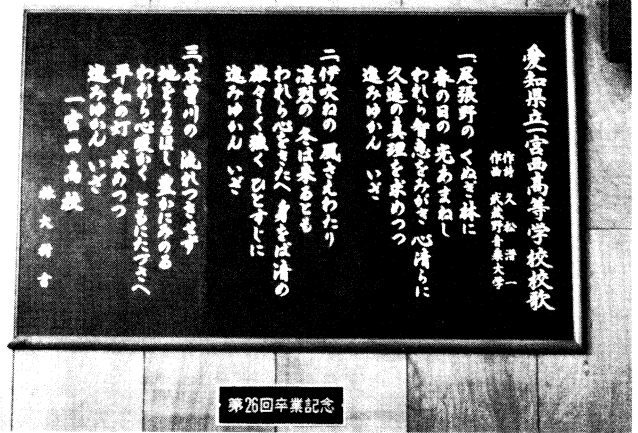 愛知県立一宮西高等学校校歌
作詩 久松潜一
作曲 武蔵野音楽大学
一 尾張野の くぬぎ林に
春の日の 光あまねし
われら智恵をみがき 心清らに
久遠の真理を求めつつ
進みゆかん いざ
二 伊吹ねの 風さえわたり
凛烈の 冬は来るとも
われら心をきたへ 身をば清め
雄々しく強く ひとすじに
進みゆかん いざ
三 木曽川の 流れつきせず
地をうるほし 豊かにみのる
われら心暖かく ともにたづさへ
平和の灯 求めつつ
進みゆかん いざ
一宮西高校
林 大 書
第26回卒業記念